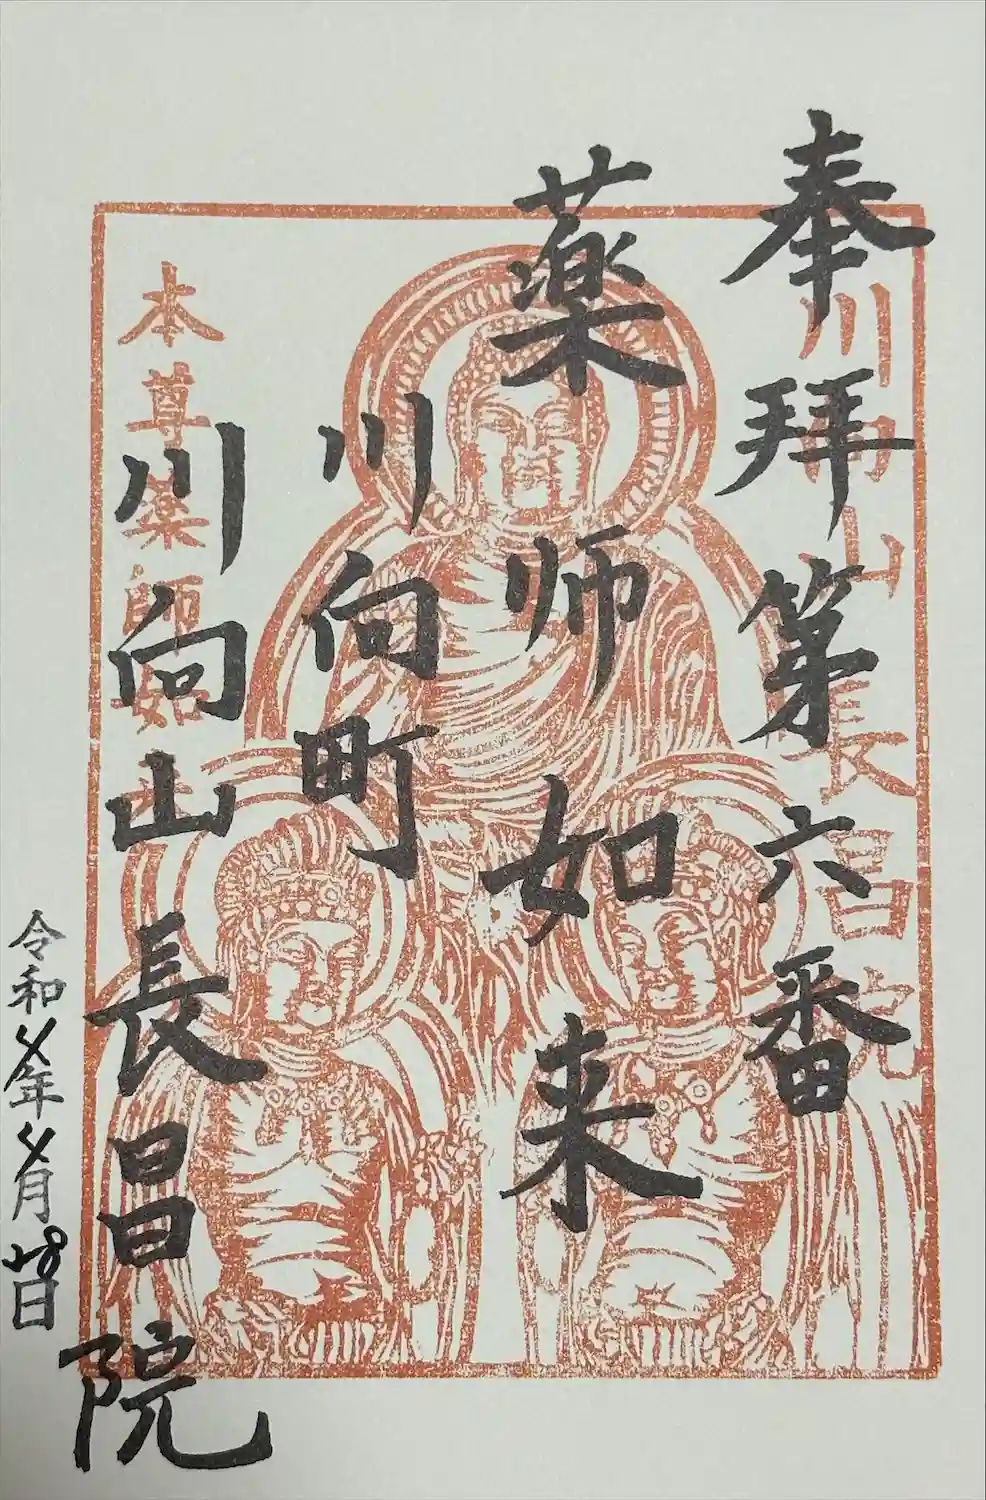 奉拝第六番
川向山長昌院
薬师如来
川向町
川向山長昌院
本尊薬師如
令和4年4月28日